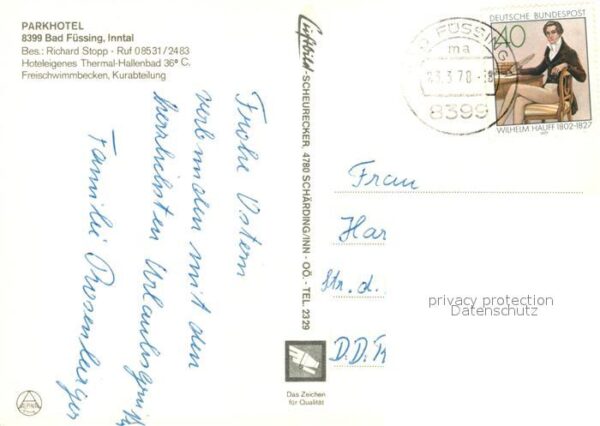 PARKHOTEL
8399 Bad Füssing, Inntal
Bes.: Richard Stopp · Ruf 08531/2483
Hoteleigenes Thermal-Hallenbad 36° C.
Freischwimmbecken, Kurabteilung
Frohe Ostern
verbunden mit den
herzlichsten Urlaubsgrüß
Familie Rosenberger
Luftbild-SCHEURECKER, 4780 SCHÄRDING/INN - OÖ. - TEL. 2329
Das Zeichen
für Qualität
ALPINA
FÜSSING
ma
8399
DEUTSCHE BUNDESPOST
40
WILHELM HAUFF 1802-1827
Frau
Har
Str. d.
D.D.R
privacy protection
Datenschutz